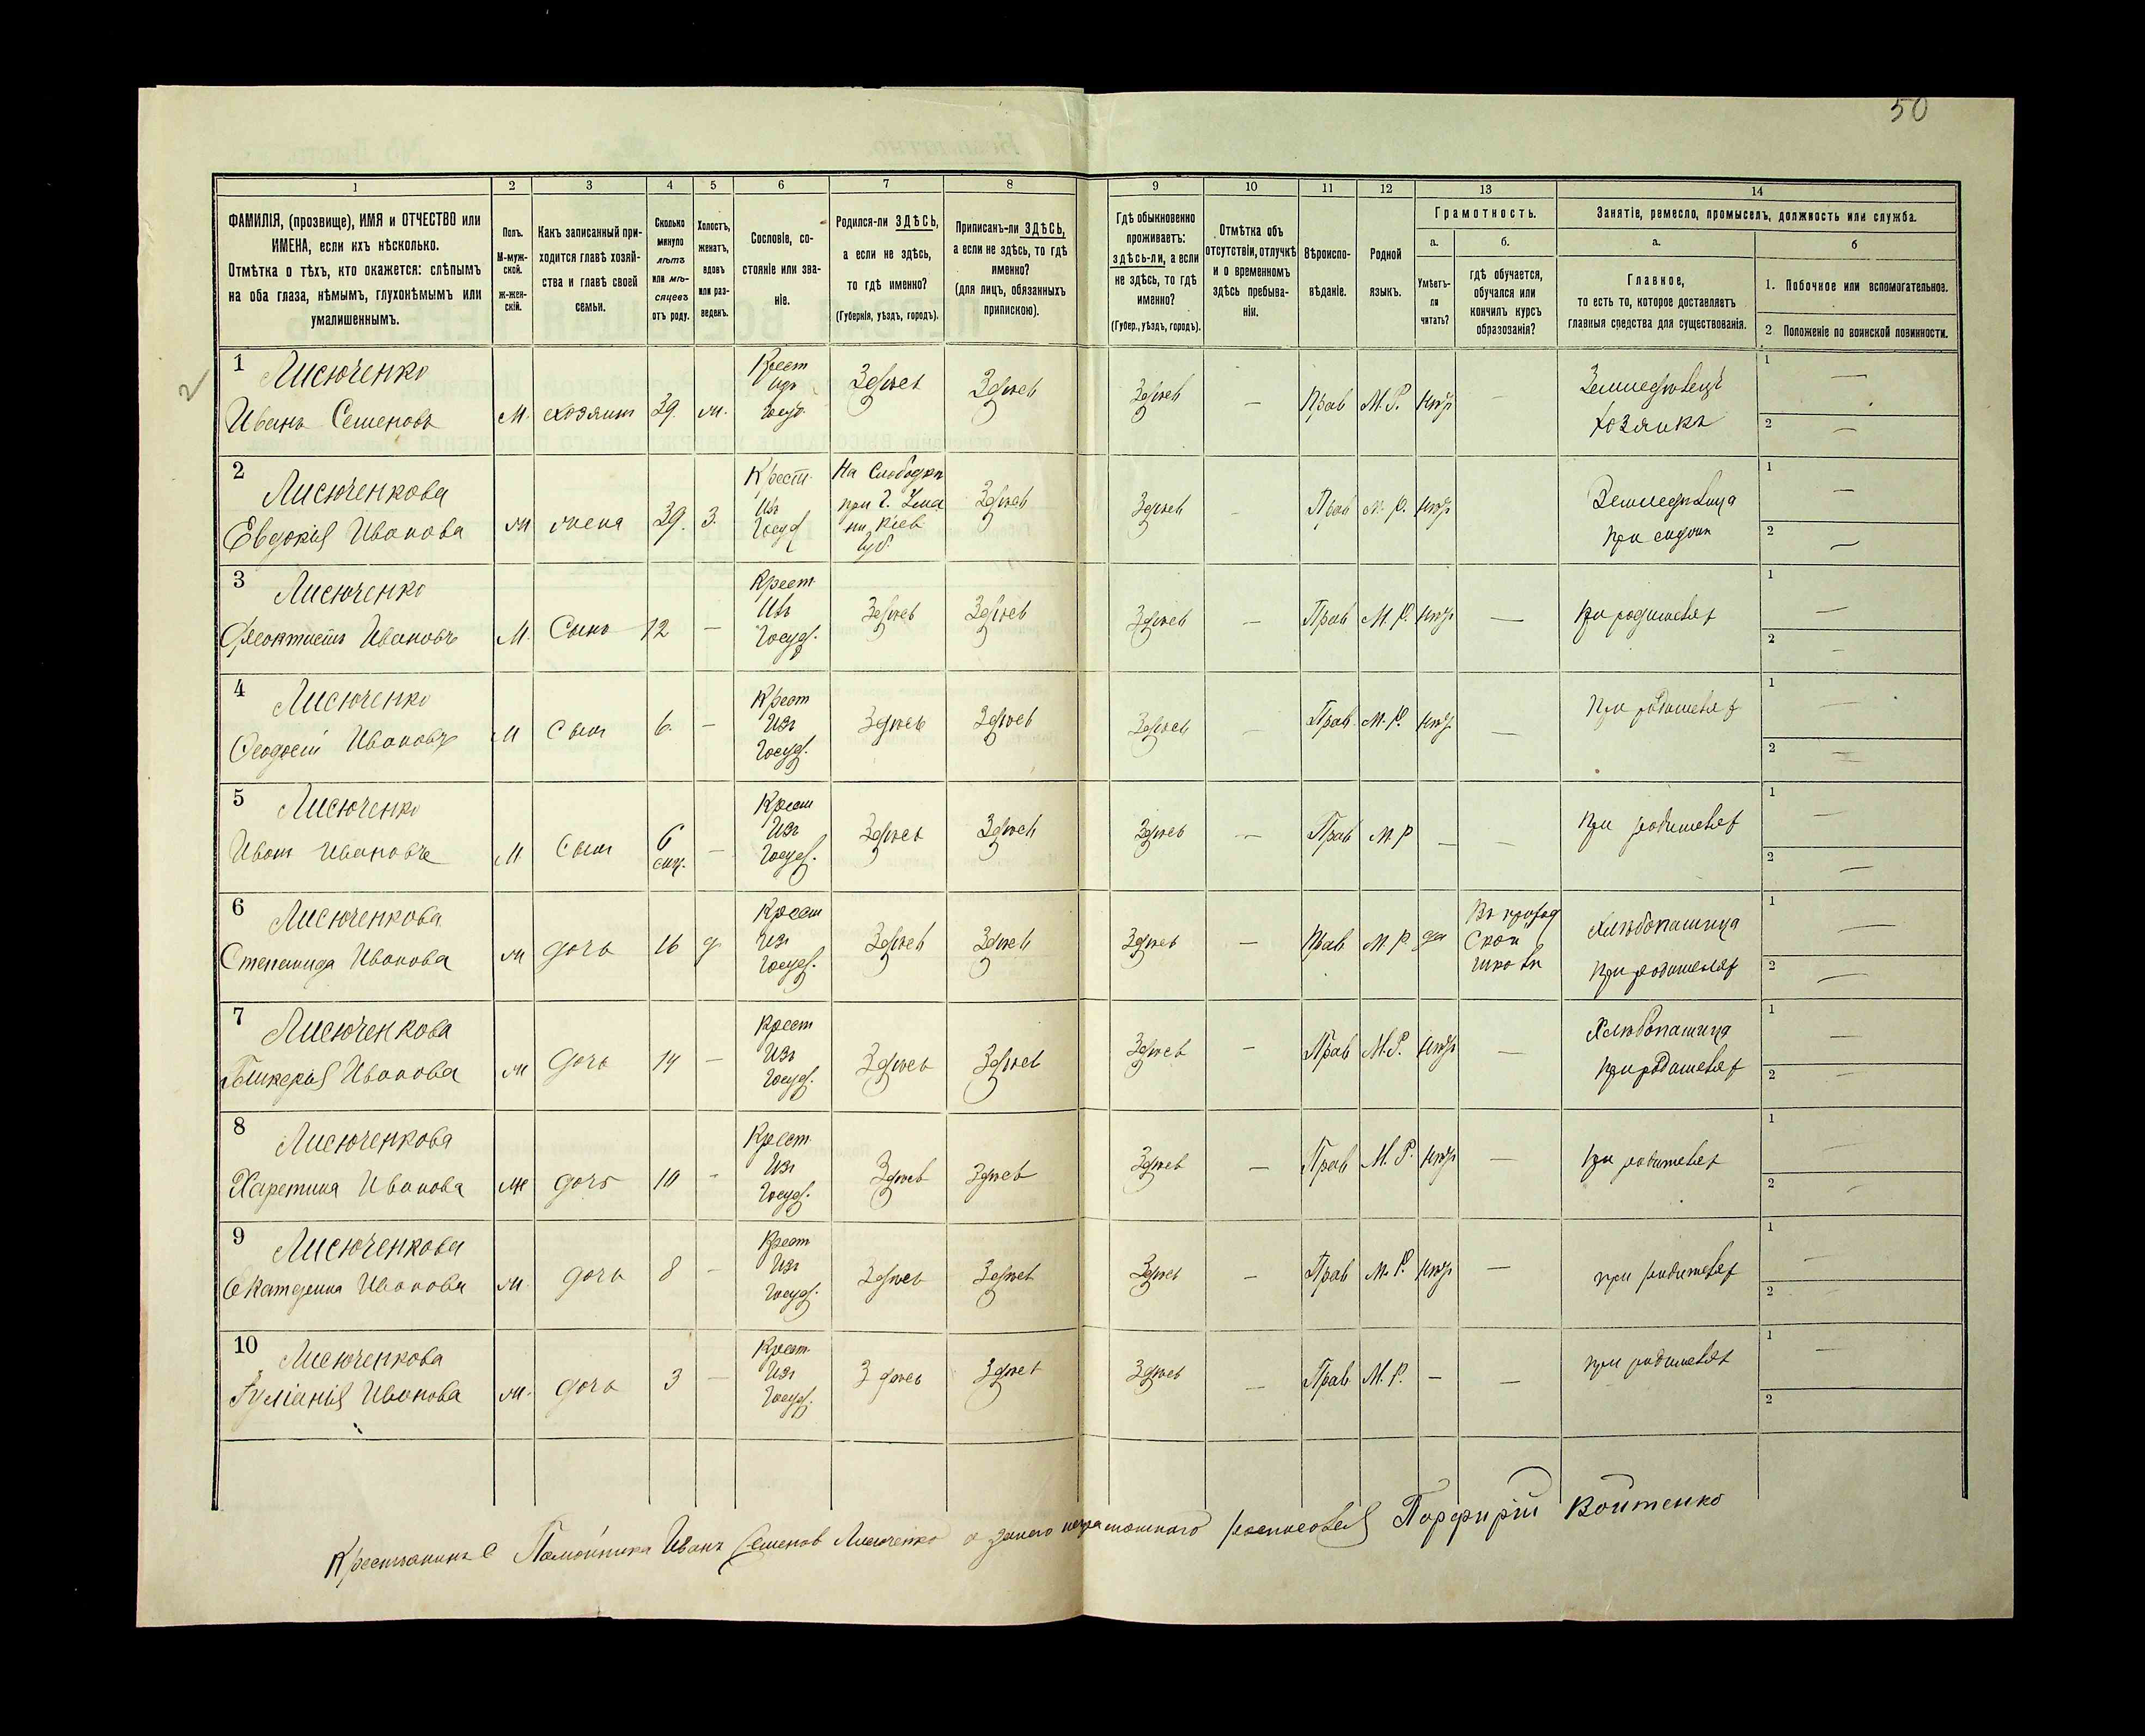 50
1 2 3 4 5 6 7 8 9 10 11 12 13 14
ФАМИЛІЯ, (прозвище), ИМЯ и ОТЧЕСТВО или ИМЕНА, если ихъ нѣсколько.
Отмѣтка о тѣхъ, кто окажется: слѣпымъ на оба глаза, нѣмымъ, глухонѣмымъ или умалишеннымъ.
Полъ. М-муж-ской. ж-жен-скій.
Какъ записанный при-ходится главѣ хозяй-ства и главѣ своей семьи.
Сколько минуло лѣтъ или мѣ-сяцевъ отъ роду.
Холостъ, женатъ, вдовъ или раз-веденъ.
Сословіе, со-стояніе или зва-ніе.
Родился-ли ЗДѢСЬ, а если не здѣсь, то гдѣ именно? (Губернія, уѣздъ, городъ).
Приписанъ-ли ЗДѢСЬ, а если не здѣсь, то гдѣ именно? (для лицъ, обязанныхъ припискою).
Гдѣ обыкновенно проживаетъ: здѣсь-ли, а если не здѣсь, то гдѣ именно? (Губер., уѣздъ, городъ).
Отмѣтка объ отсутствіи, отлучкѣ и о временномъ здѣсь пребыва-ніи.
Вѣроиспо-вѣданіе.
Родной языкъ.
Грамотность.
а. Умѣетъ-ли читать?
б. гдѣ обучается, обучался или кончилъ курсъ образованія?
Занятіе, ремесло, промыселъ, должность или служба.
а. Главное, то есть то, которое доставляетъ главныя средства для существованія.
б 1. Побочное или вспомогательное.
2 Положеніе по воинской повинности.
1 Лисюченко Иванъ Семеновъ М. хозяин 39. ж. Крест Изъ Госуд. Здѣсь Здѣсь Здѣсь — Прав М.Р. нѣт — Земледѣлецъ хозяинъ 1 — 2 —
2 Лисюченкова Евдокія Иванова ж жена 39. З. Крест. Изъ Госуд На Слободкѣ при г. Ума ни Кіев губ. Здѣсь Здѣсь — Прав М.Р. нѣт Земледѣлица при 1 — 2 —
3 Лисюченко Феоктистъ Ивановъ М. Сынъ 12 — Крест. Изъ Госуд. Здѣсь Здѣсь Здѣсь — Прав М.Р. нѣт — при родителях 1 — 2 -
4 Лисюченко Феодосій Ивановъ М Сын 6. — Крест Изъ Госуд. Здѣсь Здѣсь Здѣсь — Прав. М.Р. нѣт. — При родителях 1 — 2 —
5 Лисюченко Иван Ивановъ М. Сын 6 мѣс. — Крест Изъ Госуд. Здѣсь Здѣсь Здѣсь — Прав М Р — — При родителях 1 — 2 —
6 Лисюченкова Степанида Иванова ж дочь 16 д Крест Изъ Госуд. Здѣсь Здѣсь Здѣсь — Прав М Р да Въ приход Ской школѣ Хлѣбопашица при родителях 1 — 2 —
7 Лисюченкова Гликерія Иванова ж дочь 14 — Крест Изъ Госуд. Здѣсь Здѣсь Здѣсь — Прав М.Р. нѣт — Хлѣбопашица при родителях 1 — 2 —
8 Лисюченкова Харетина Иванова ж дочь 10 - Крест. Изъ Госуд. Здѣсь Здѣсь Здѣсь — Прав М.Р. нѣт — При родителях 1 — 2 —
9 Лисюченкова Екатерина Иванова ж. дочь 8 — Крест Изъ Госуд. Здѣсь Здѣсь Здѣсь — Прав М.Р. нѣт — при родителях 1 — 2
10 Лисюченкова Іуліанія Иванова ж. дочь 3 — Крест Изъ Госуд. Здѣсь Здѣсь Здѣсь — Прав М.Р. — — при родителях 1 — 2
Крестьянинъ С Паланка Иванъ Семенов Лисюченко а за него неграмотного росписовался Порфирій Войтенко